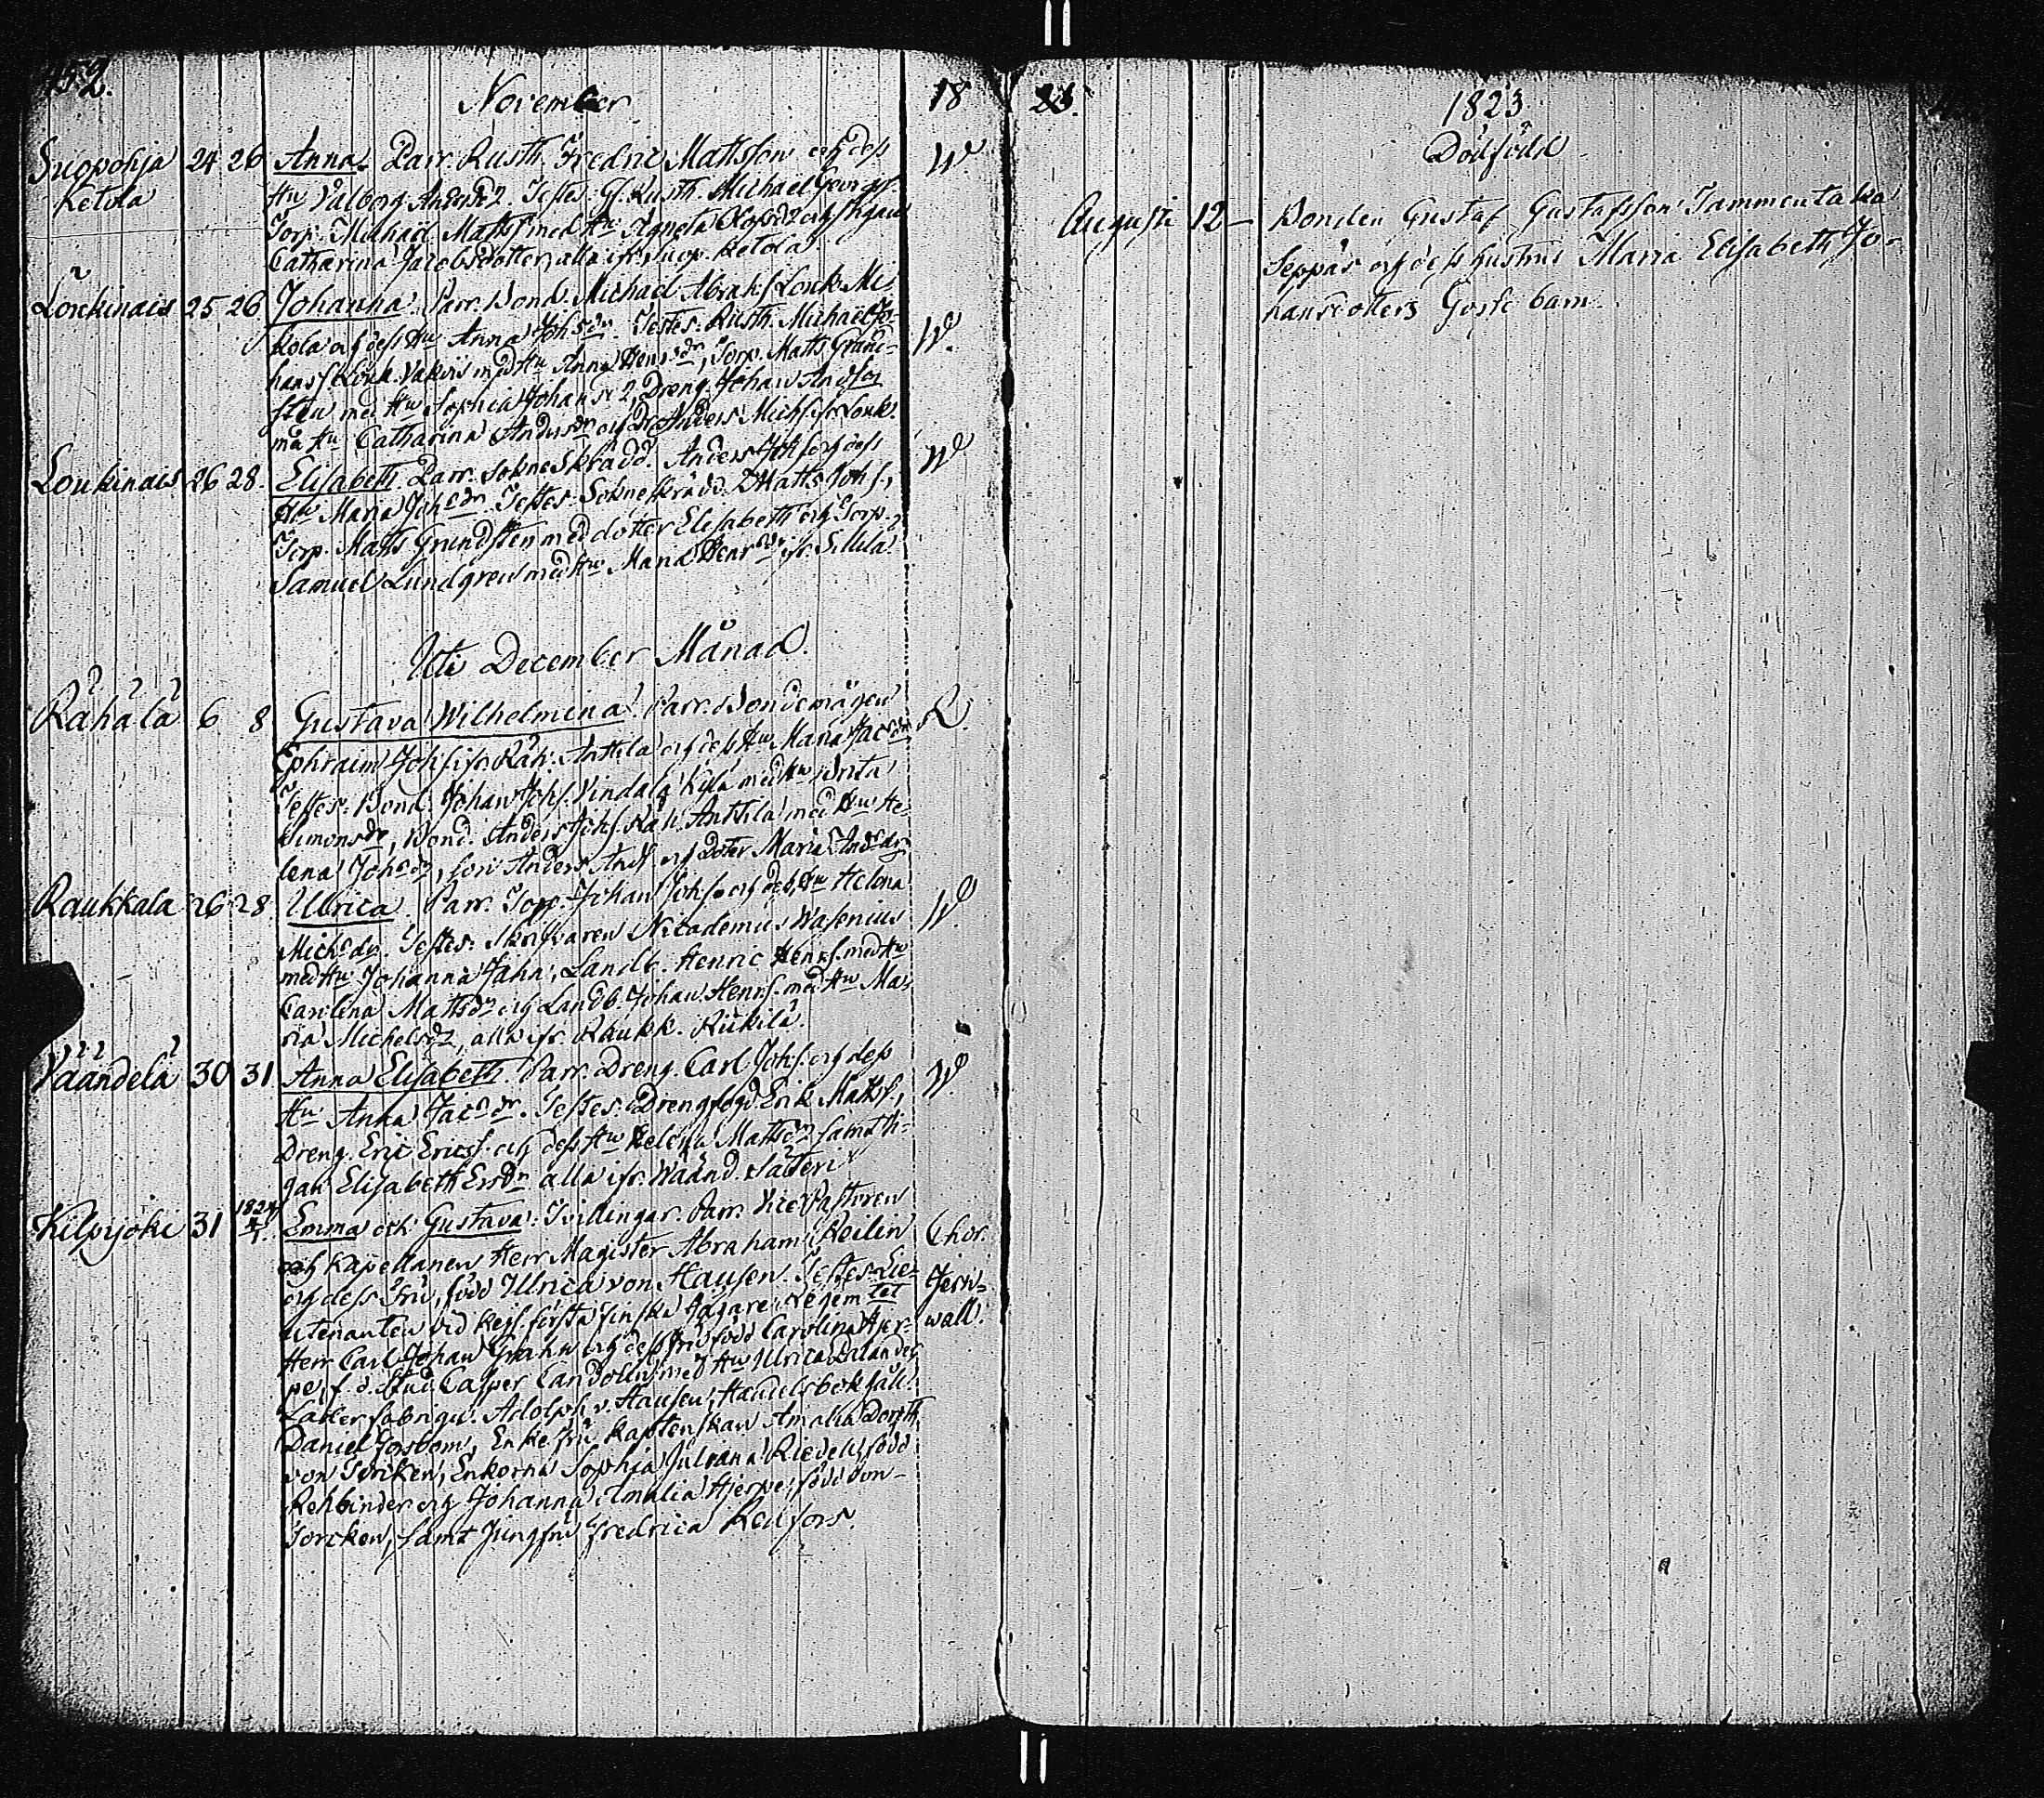 452.
November 18
Suopohja 24 26 Anna. Parr. Rusth. Fredric Mattsson och dess W.
Ketola Hu Valborg Andersdr. Testes: Rusth. Michaël Georgs.
Torp. Michaël Matts. med Hu Agneta och Pigan
Catharina Jacobsdotter, alla ifr. Suop. Ketola
Loukinais 25 26 Johanna. Parr. Bond. Michaël Abrah.s Louk. Mi-
kola och dess Hu Anna Johsdr. Testes: Rusth. Michaël Jo- W.
hans s. Louk. med Hu Anna Henrsdr, Torp. Matts Grund-
sten med Hu Sophia Johansdr, Dreng. Johan Andson
med Hu Catharina Andersdr och Anders Michs. ifr. Louk.
Loukinais 26 28. Elisabeth. Parr. Sokneskrädd. Anders Johs. och dess W
Hu Maria Johsdr. Testes: Sokneskrädd. Matts Johs.,
Torp. Matts Grundsten med dotter Elisabeth och Torp.
Samuel Lundgren med Hu Maria Henrsdr ifr. Sillilä
Uti December Månad.
Rahala 6 8 Gustava Wilhelmina. Parr. Bondemågen R.
Ephraim Johs. ifr. Rah. Anttila och dess Hu Maria Jacsdr
Testes: Bond. Johan Johs. Vindala Kylä med Hu Brita
Simonsdr, Bond. Anders Johs. Rah. Anttila med Hu He-
lena Johsdr, son Anders Ands. och Doter Maria Andsdr
Raukkala 26 28 Ulrica. Parr. Torp. Johan Johs. och dess Hu Helena W.
Michsdr. Testes: Skrifvaren Nicodemus Wasenius
med Hu Johanna Jahn, Landb. Henric Henrs. med Hu
Carolina Mattsdr och Landb. Johan Henrs. med Hu Ma-
ria Michelsdr, alla ifr. Raukk. Riikilä.
Väändelä 30 31 Anna Elisabeth. Parr. Dreng. Carl Johs. och dess W.
Hu Anna Jacsdr. Testes: Drengfogd. Erik Matts.,
Dreng. Eric Erics. och dess Hu Helena Mattsdr samt Pi-
gan Elisabeth Ersdr alla ifr. Wäänd. Säteri
Kilpijoki 31 1824 1/1. Emma och Gustava. Tvillingar. Parr. Vice Pastoren
och Kapellanen Herr Magister Abraham Reilin Chor.
och dess Fru, född Ulrica von Hausen. Testes: Lie- Jern-
utenanten vid Kejs. första finska Jägare Regemtet wall.
Herr Carl Johan Grahn och dess fru född Carolina Hjer-
pe, f. d. Stud. Casper Candolin med Hu Ulrica Dalander
Adolph v. Hausen, Handelsbokhåll.
Daniel Forsbom, Enkefru Kaptenskan Amalia Doroth.
von Torcken, Enkorna Sophia Juliana Riedell, född
Rehbinder och Johanna Amalia Hjerpe, född von
Torcken, samt Jungfru Fredrica Renfors.
23. 1823
Dödföde
Augusti 12 - Bonden Gustaf Gustafsson Tammentaka
Seppäs och dess hustrus Maria Elisabeth Jo-
hansdotters Gosse barn.